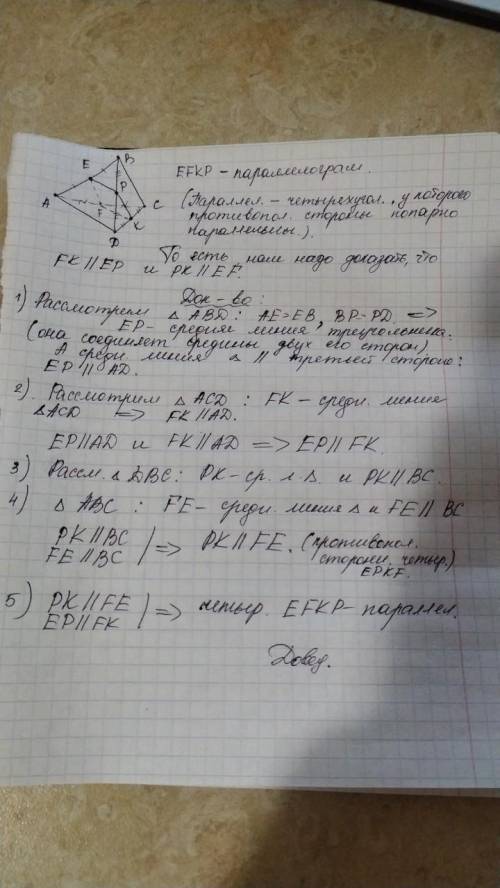 B
E
P
A
F
C
K
D
EFKP - параллелограм.
(Параллел. - четырехугол., у которого
противопол. стороны попарно
параллельны.).
То есть нам надо доказать, что
FK || EP и PK || EF.
Док-во:
1) Рассмотрим △ ABD: AE=EB, BP=PD. =>
EP - средняя линия треугольника.
(она соединяет средины двух его сторон)
А средн. линия △ || третьей стороне:
EP || AD.
2). Рассмотрим △ ACD : FK - средн. линия
△ACD => FK || AD.
EP || AD и FK || AD => EP || FK.
3) Рассм. △ DBC: PK - ср. л △. и PK || BC.
4) △ ABC : FE - средн. линия △ и FE || BC
PK || BC
FE || BC | => PK || FE. (противопол.
сторони. четыр.)
EPKF.
5) PK || FE
EP || FK | => четыр. EFKP - параллел.
Довед.